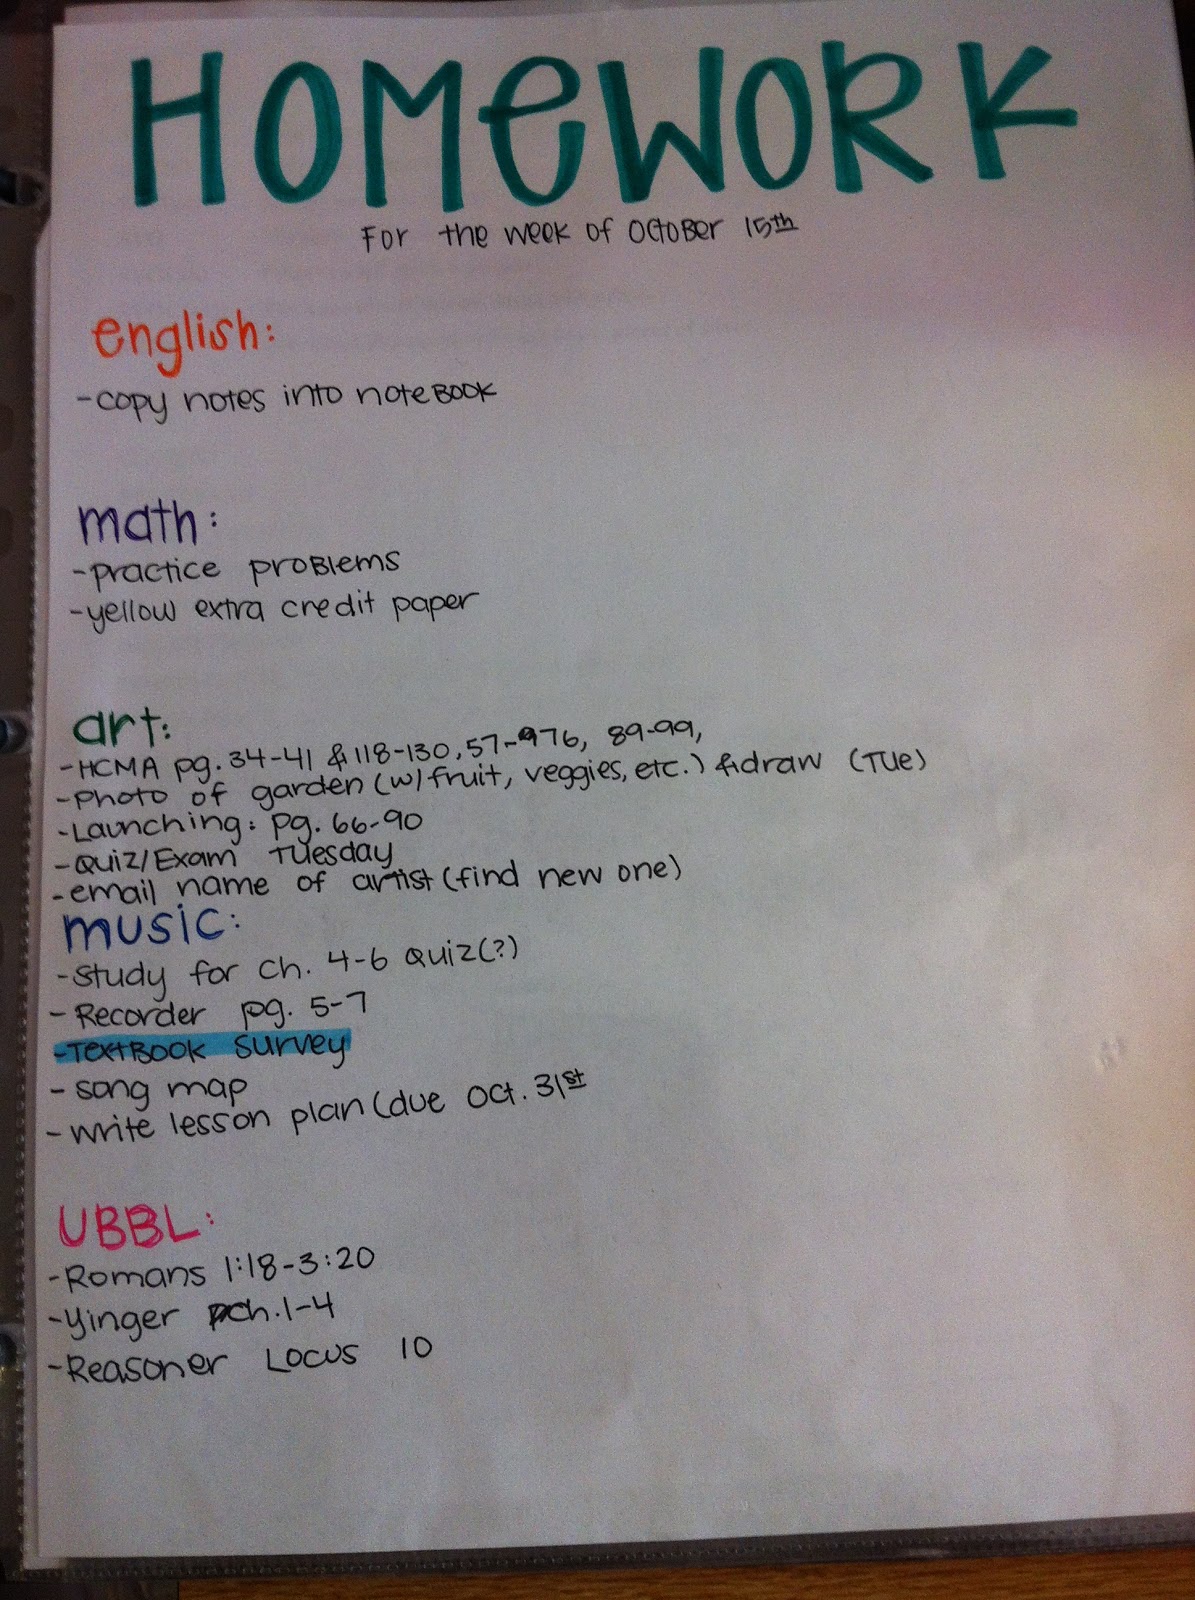 HOMEWORK
For the week of October 15th
english:
- copy notes into notebook
math:
- practice problems
- yellow extra credit paper
art:
- HCMA pg. 34-41 & 118-130, 57-76, 89-99,
- Photo of garden (w/ fruit, veggies, etc.) & draw (Tue)
- Launching: pg. 66-90
- Quiz/Exam Tuesday
- email name of artist (find new one)
music:
- Study for Ch. 4-6 Quiz (?)
- Recorder pg. 5-7
- Textbook Survey
- song map
- write lesson plan (due Oct. 31st
UBBL:
- Romans 1:18-3:20
- Yinger ch. 1-4
- Reasoner Locus 10